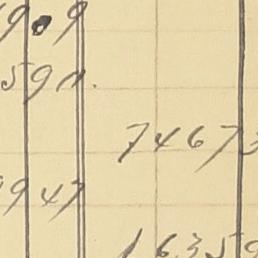 9.9
59
74673
947
16359